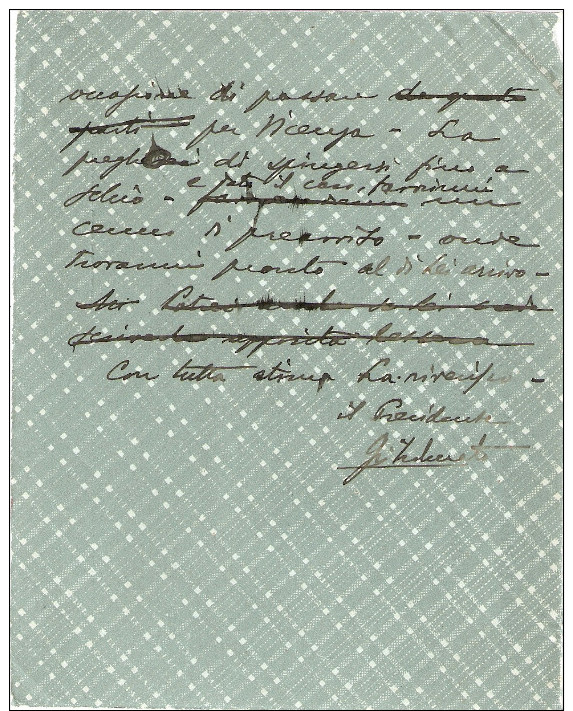 occasione di passare da queste
parti per Vicenza - La
pregherei di spingersi fino a
Schio - e, dato il caso, farmene un
cenno di preavviso - onde
trovarmi pronto al di Lei arrivo -
Con tutta stima La riverisco -
il Presidente